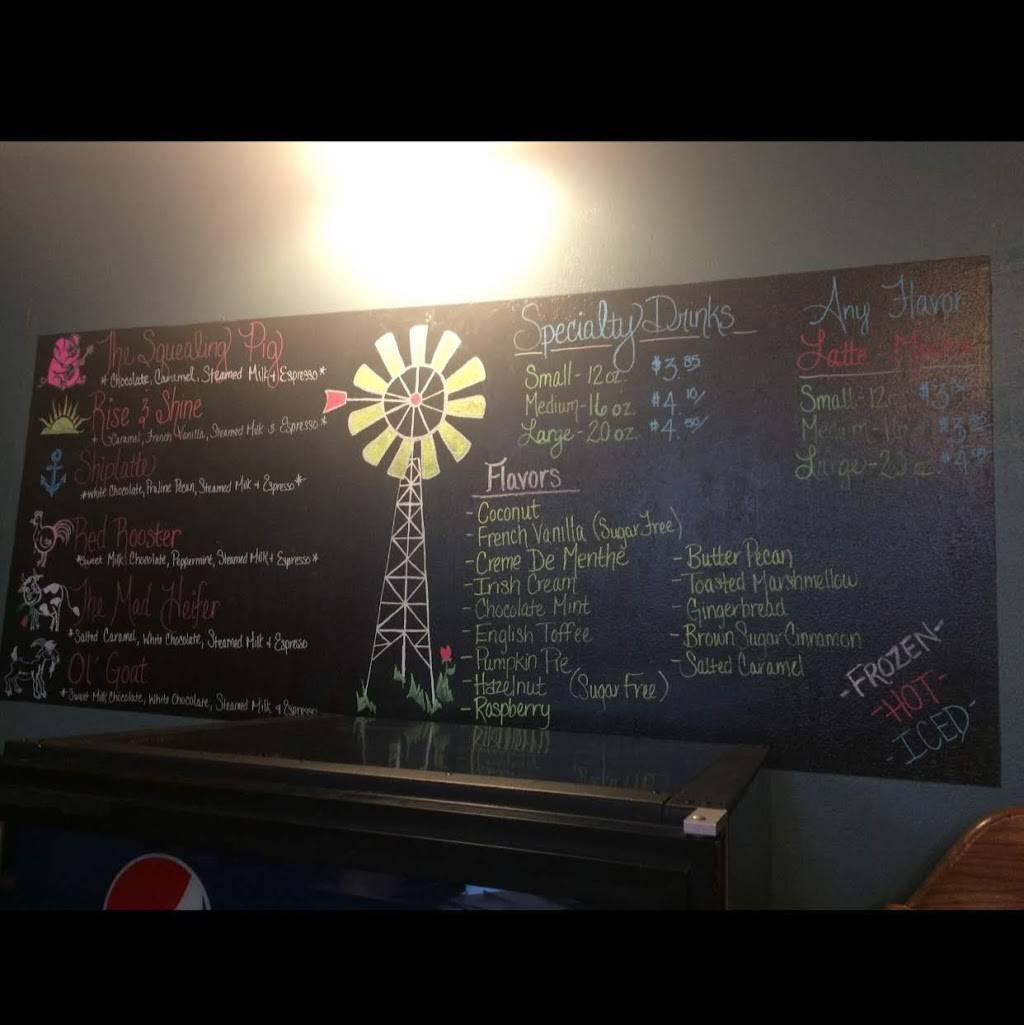 The Squealing Pig
*Chocolate, Caramel, Steamed Milk & Espresso*
Rise & Shine
*Caramel, French Vanilla, Steamed Milk & Espresso*
Shiplatte
*White Chocolate, Praline Pecan, Steamed Milk & Espresso*
Red Rooster
*Sweet Milk Chocolate, Peppermint, Steamed Milk & Espresso*
The Mad Heifer
*Salted Caramel, White Chocolate, Steamed Milk & Espresso
Ol' Goat
*Sweet Milk Chocolate, White Chocolate, Steamed Milk & Espresso
Specialty Drinks
Small - 12 oz. $3.85
Medium - 16 oz $4.10
Large - 20 oz. $4.50
Flavors
- Coconut
- French Vanilla (Sugar Free)
- Creme De Menthe
- Irish Cream
- Chocolate Mint
- English Toffee
- Pumpkin Pie
- Hazelnut (Sugar Free)
- Raspberry
- Butter Pecan
- Toasted Marshmellow
- Gingerbread
- Brown Sugar Cinnamon
- Salted Caramel
Any Flavor
Latte - Mocha
Small - 12
Medium
Large - 20 oz.
-FROZEN-
-HOT-
-ICED-